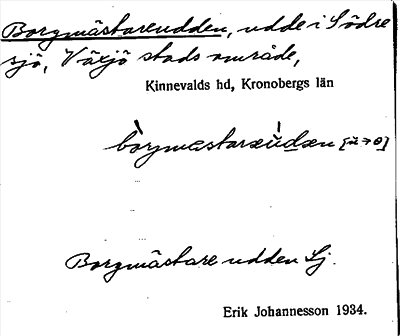 Borgmästareudden, udde i Södre
sjö, Växjö stads område,
Kinnevalds hd, Kronobergs län
bòrgmɛstaræùdæn [u → ɵ]
Borgmästare udden Sj.
Erik Johannesson 1934.